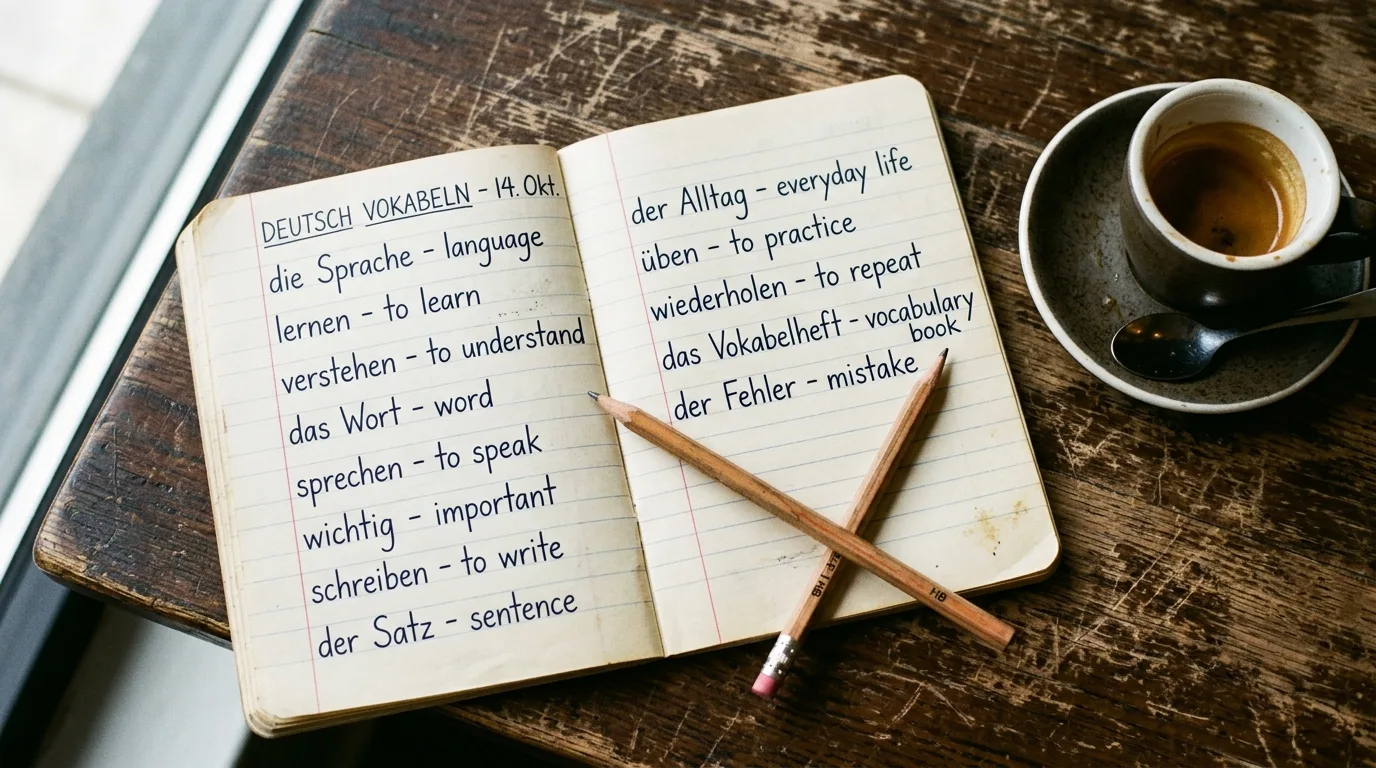 DEUTSCH VOKABELN – 14. Okt.
die Sprache – language
lernen – to learn
verstehen – to understand
das Wort – word
sprechen – to speak
wichtig – important
schreiben – to write
der Satz – sentence
der Alltag – everyday life
üben – to practice
wiederholen – to repeat
das Vokabelheft – vocabulary
book
der Fehler – mistake
HB